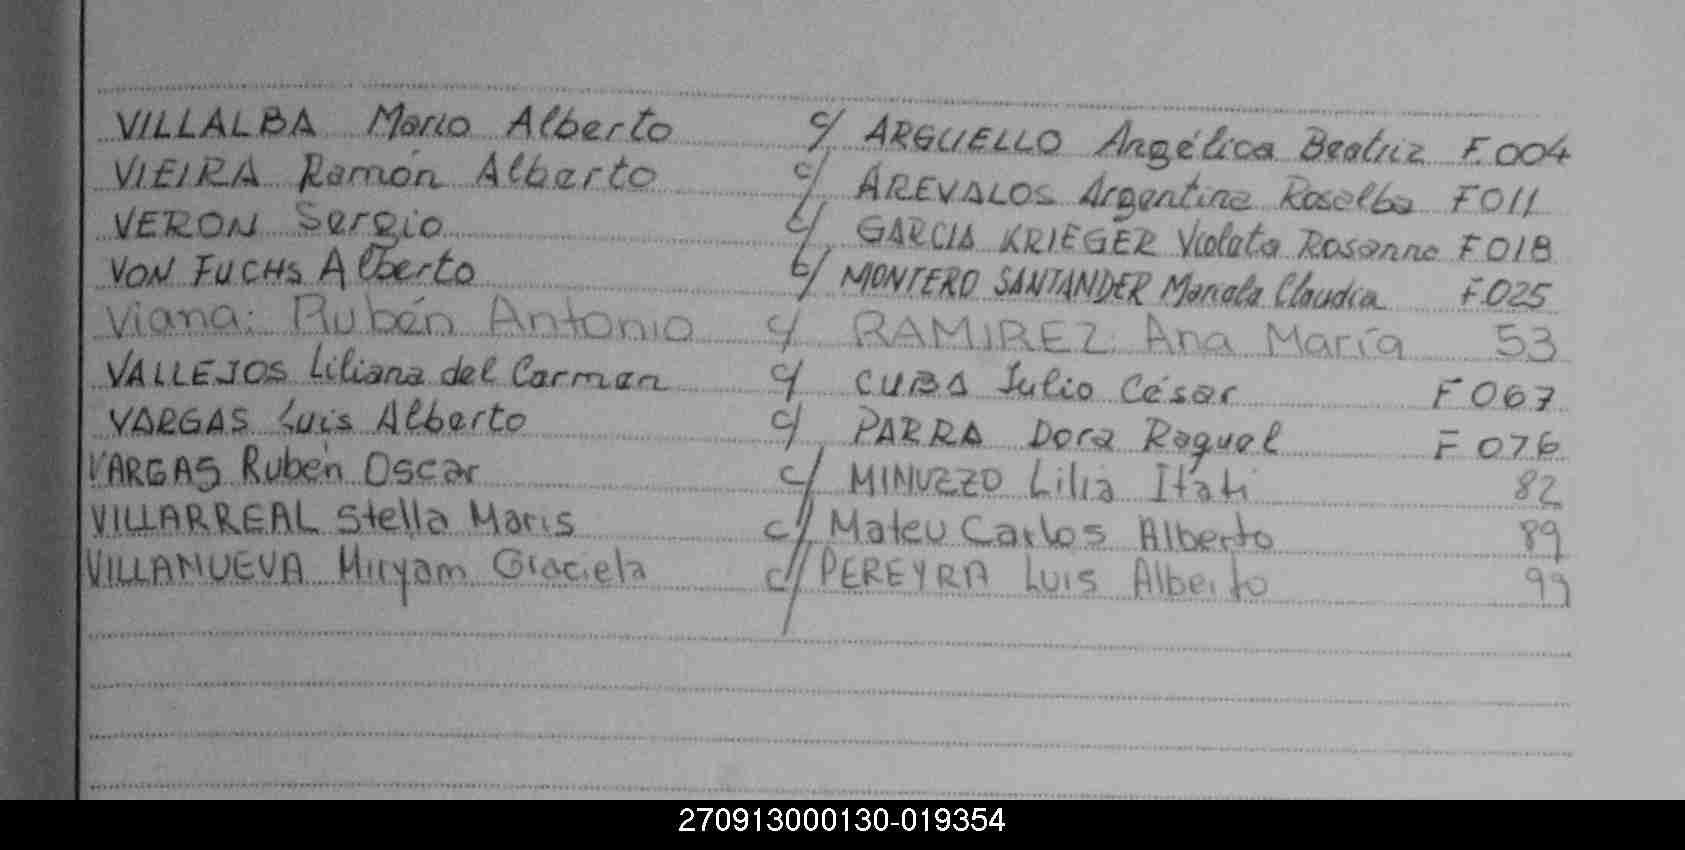 VILLALBA Mario Alberto c/ ARGUELLO Angélica Beatriz F.004
VIEIRA Ramón Alberto c/ AREVALOS Argentina Roselba F011
VERON Sergio c/ GARCIA KRIEGER Violeta Rosanna F018
VON FUCHS Alberto c/ MONTERO SANTANDER Mariela Claudia F.025
Viana: Rubén Antonio c/ RAMIREZ: Ana María 53
VALLEJOS Liliana del Carmen c/ CUBA Julio César F067
VARGAS Luis Alberto c/ PARRA Dora Raquel F076
VARGAS Rubén Oscar c/ MINUZZO Lilia Itati 82
VILLARREAL Stella Maris c/ Mateu Carlos Alberto 89
VILLANUEVA Miryam Graciela c/ PEREYRA Luis Alberto 99
270913000130-019354